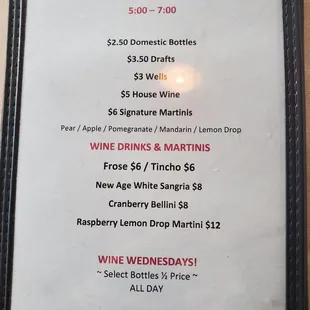 5:00 - 7:00
$2.50 Domestic Bottles
$3.50 Drafts
$3 Wells
$5 House Wine
$6 Signature Martinis
Pear / Apple / Pomegranate / Mandarin / Lemon Drop
WINE DRINKS & MARTINIS
Frose $6 / Tincho $6
New Age White Sangria $8
Cranberry Bellini $8
Raspberry Lemon Drop Martini $12
WINE WEDNESDAYS!
~ Select Bottles ½ Price ~
ALL DAY